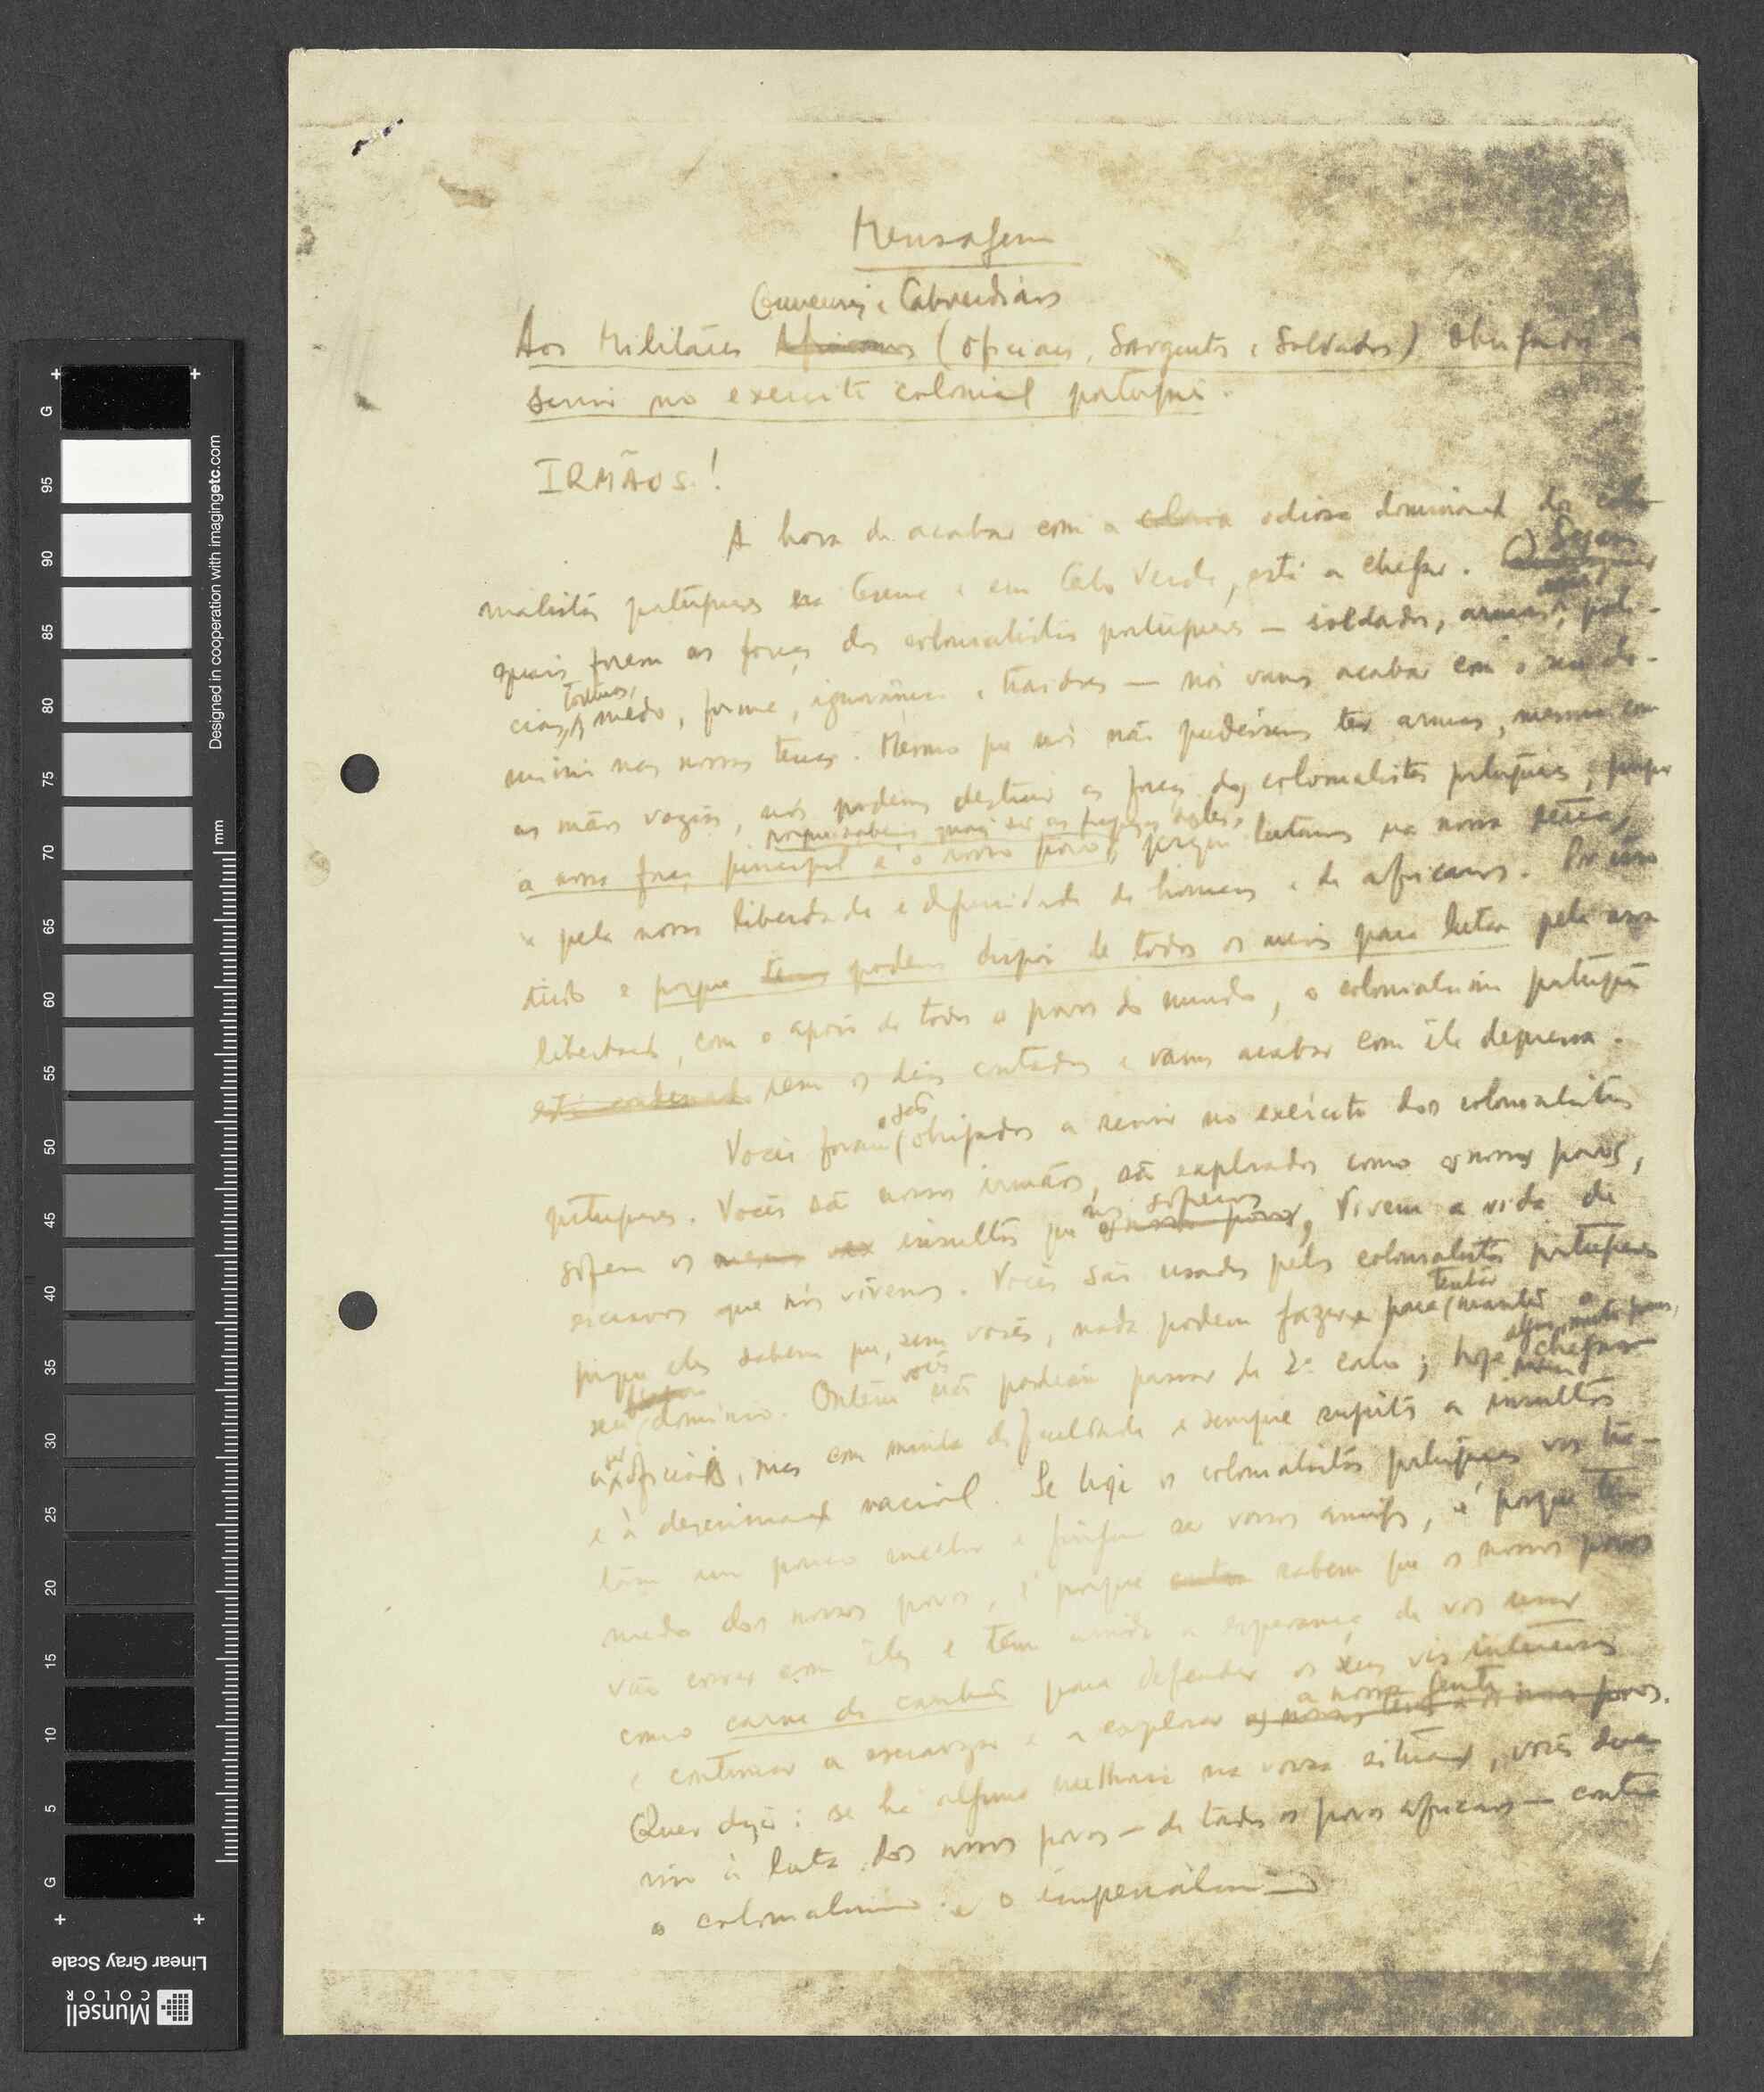 Mensagem
Guineenses e Caboverdianos
Aos Militares Africanos (oficiais, Sargentos e Soldados) obrigados a
servir no exercito colonial português.
IRMÃOS!
A hora de acabar com a odiosa dominação dos colo-
nialistas portugueses na Guiné e em Cabo Verde, está a chegar. Sejam
quais forem as forças dos colonialistas portugueses — soldados, armas, polí-
torturas,
cias, medo, fome, ignorância e traidores — nós vamos acabar com o seu do-
mínio nas nossas terras. Mesmo que nós não pudéssemos ter armas, mesmo com
as mãos vazias, nós podemos destruir as forças dos colonialistas portugueses, porque
porque sabemos quais são as fraquezas deles,
a nossa força principal é o nosso povo, porque lutamos na nossa terra,
e pela nossa liberdade e dignidade de homens e de africanos. Por isso
tudo e porque temos podemos dispor de todos os meios para lutar pela nossa
liberdade, com o apoio de todos os povos do mundo, o colonialismo português
está condenado tem os dias contados e vamos acabar com êle depressa.
e são
Vocês foram obrigados a servir no exército dos colonialistas
portugueses. Vocês são nossos irmãos, são explorados como os nossos povos,
nós sofremos
sofrem os mesmos insultos que os nossos povos, vivem a vida de
escravos que nós vivemos. Vocês são usados pelos colonialistas portugueses
tentar
porque eles sabem que, sem vocês, nada podem fazer para manter o
alguns, muito poucos,
seu domínio. Ontem vocês não podiam passar de 2º cabo; hoje chegam
a ser oficiais, mas com muita dificuldade e sempre sujeitos a insultos
e à descriminação racial. Se hoje os colonialistas portugueses vos tra-
tam um pouco melhor e fingem ser vossos amigos, é porque têm
medo dos nossos povos, é porque sabem que os nossos povos
vão correr com êles e têm ainda a esperança de vos usar
como carne de canhão para defender os seus vis interesses
a nossa gente
e continuar a escravizar e a explorar os nossos povos.
Quer dizer: se há alguma melhoria na vossa situação, vocês devem
isso à luta dos nossos povos — de todos os povos africanos — contra
o colonialismo e o imperialismo